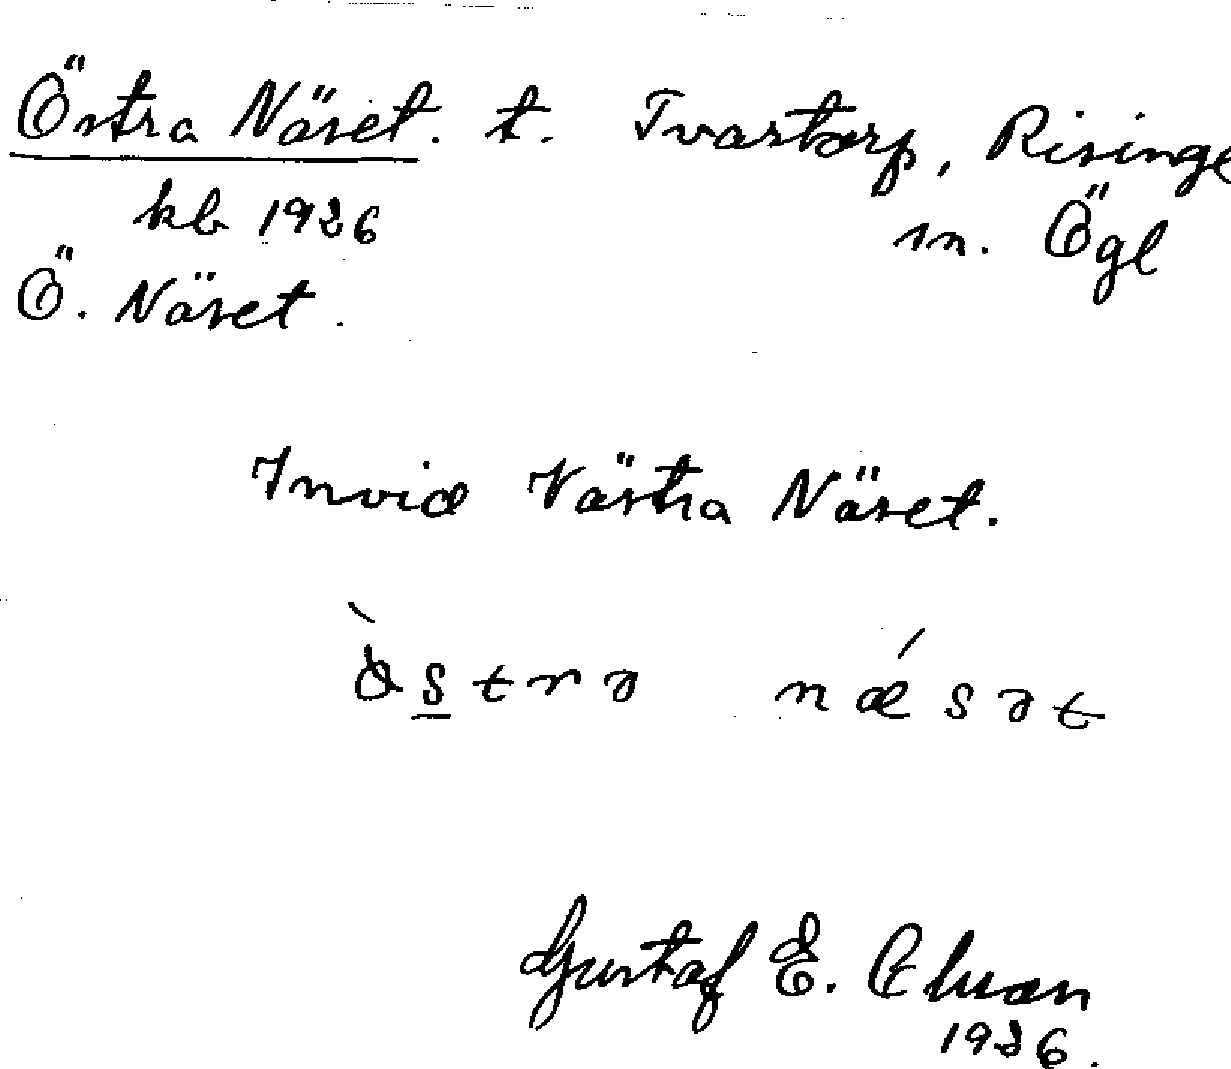 Östra Näset. t. Tvartorp, Risinge
kb 1926 sn. Ögl
Ö. Näset.
Invid Västra Näset.
næsət
Gustaf E.
1926.